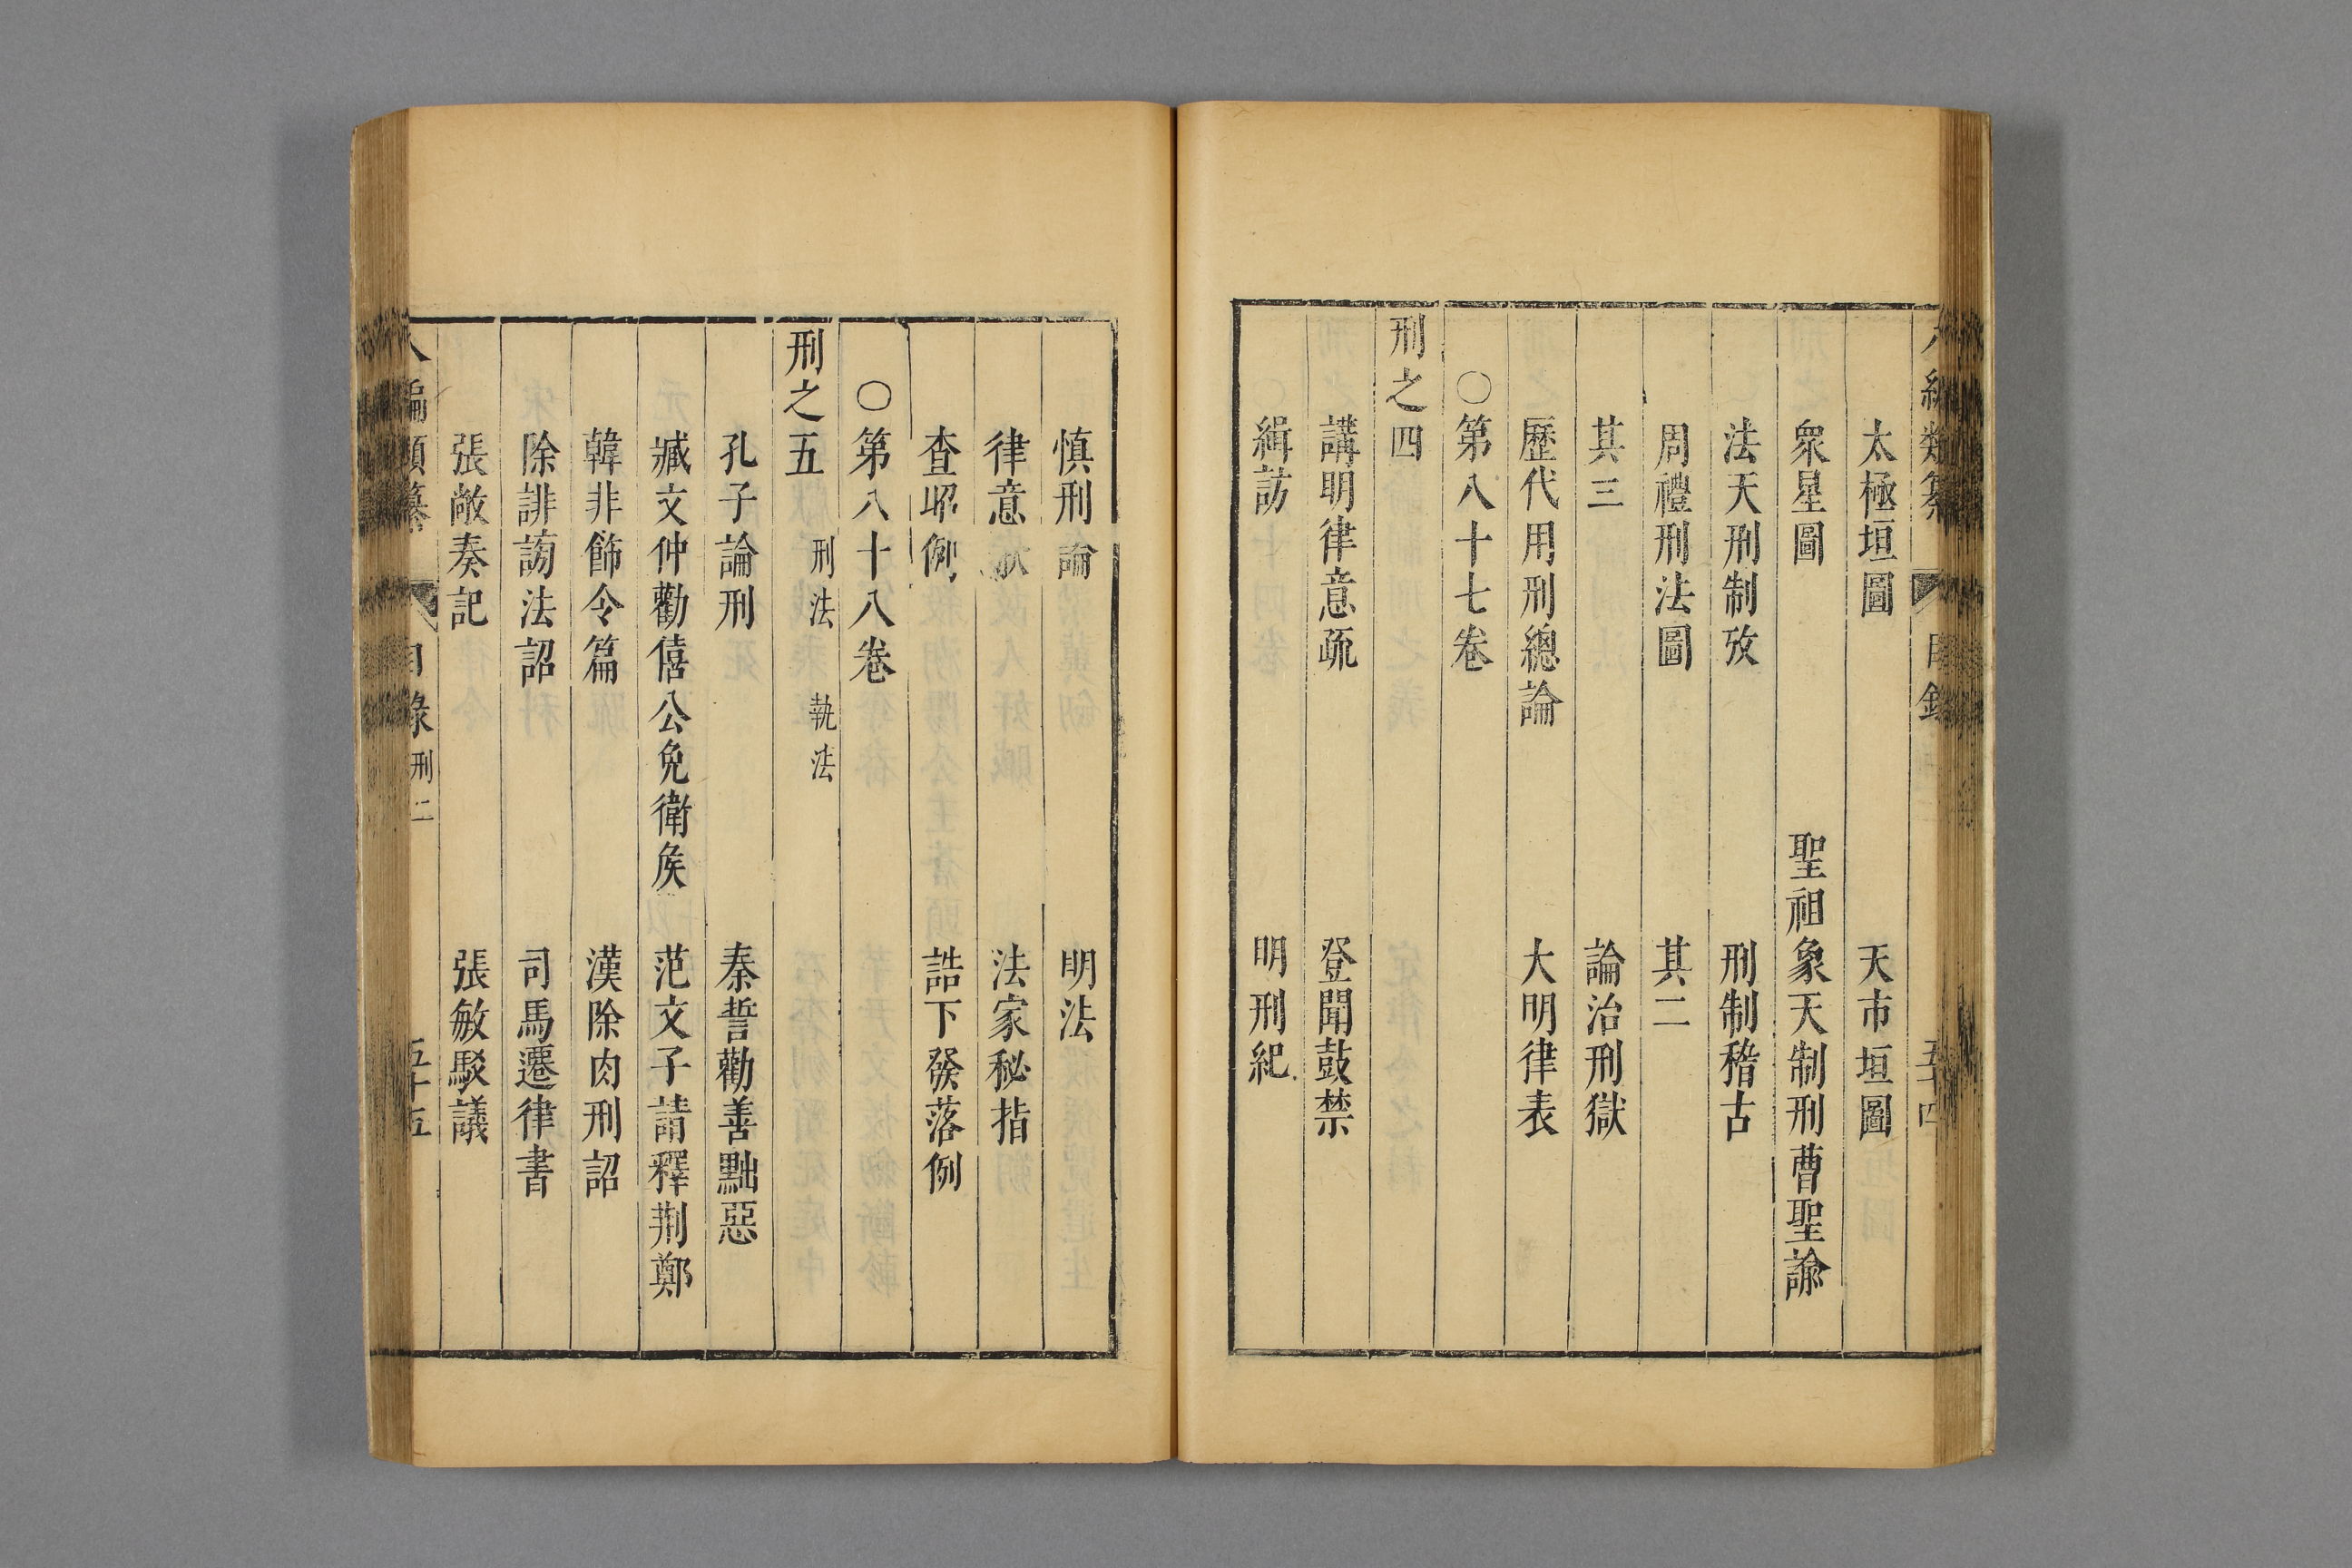 太極垣圖 天市垣圖
衆星圖 聖祖象天制刑曹聖諭
法天刑制攷 刑制稽古
周禮刑法圖 其二
其三 論治刑獄
歷代用刑總論 大明律表
○第八十七卷
刑之四
講明律意疏 登聞鼓禁
緝訪 明刑紀
慎刑論 明法
律意 法家秘指
查照例 誥下發落例
○第八十八卷
刑之五 刑法 執法
孔子論刑 秦誓勸善黜惡
臧文仲勸僖公免衛矦 范文子請釋荆鄭
韓非飾令篇 漢除肉刑詔
除誹謗法詔 司馬遷律書
張敞奏記 張敏駁議
八編類纂 目錄 刑二 五十五